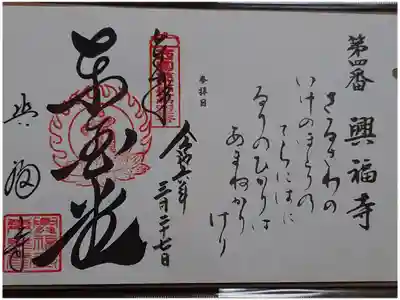 第四番 興福寺
さるさわの
いけのほとりの
てらにはに
るりのひかりは
あまねかり
けり
参拝日
令和六年
三月二十七日
奉拝
東金堂
興福寺